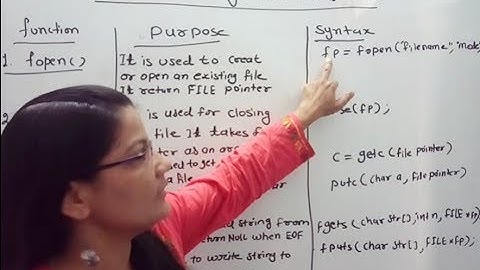 function purpose Syntax
1. fopen() It is used to creat fp = fopen("filename", "mode
or open an existing file
It return FILE pointer
is used for closing se(fp);
file It takes f
ter as an ar
c = getc (file pointer)
putc (char a, file pointer)
string from fgets (char str[], int n, FILE *fp)
return NULL when EOF
to write string to fputs (char str[], FILE *fp);